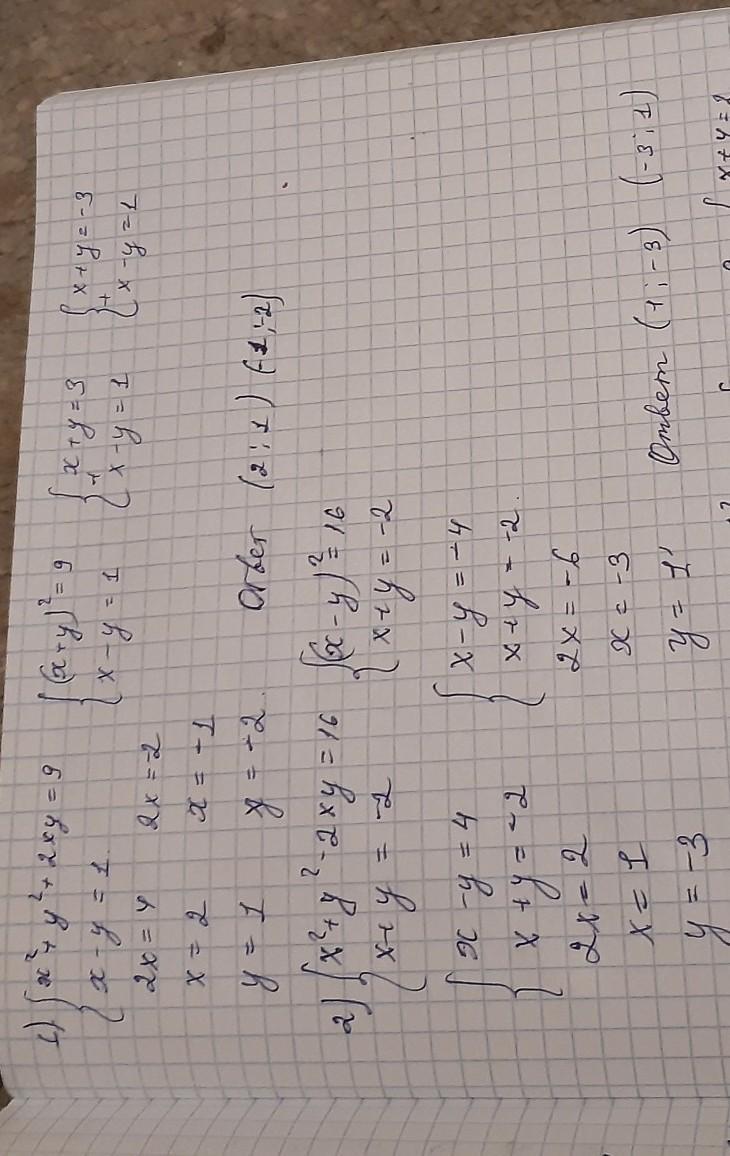 1) { x² + y² + 2xy = 9   { (x+y)² = 9   { x + y = 3   { x + y = -3
{ x - y = 1   { x - y = 1   + { x - y = 1   + { x - y = 1
2x = 4   2x = -2
x = 2   x = -1
y = 1   y = -2.   Ответ (2 ; 1) (-1 ; -2)
2) { x² + y² - 2xy = 16   { (x - y)² = 16
{ x + y = -2   { x + y = -2
{ x - y = 4   { x - y = -4
{ x + y = -2   { x + y = -2.
2x = 2   2x = -6
x = 1   x = -3
y = -3   y = 1   Ответ (1 ; -3) (-3 ; 1)